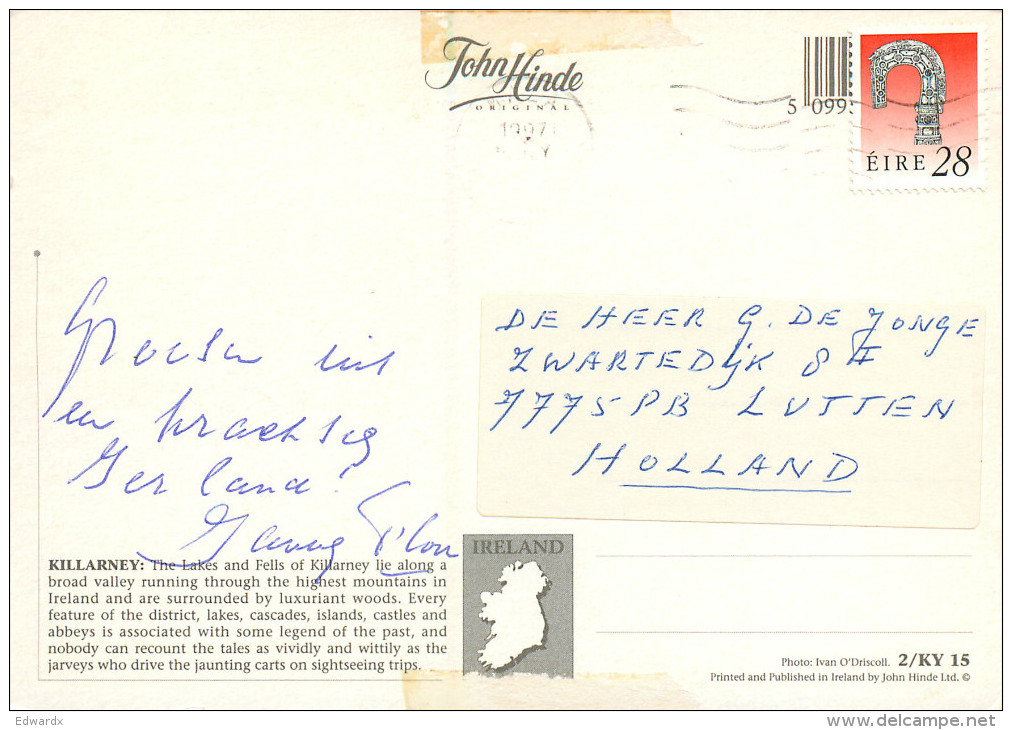 John Hinde
ORIGINAL
1997
5 099
ÉIRE 28
Groeten uit
een prachtig
Ierland!
DE HEER G. DE JONGE
ZWARTEDIJK 8 A
7775 PB LUTTEN
HOLLAND
KILLARNEY: The Lakes and Fells of Killarney lie along a
broad valley running through the highest mountains in
Ireland and are surrounded by luxuriant woods. Every
feature of the district, lakes, cascades, islands, castles and
abbeys is associated with some legend of the past, and
nobody can recount the tales as vividly and wittily as the
jarveys who drive the jaunting carts on sightseeing trips.
IRELAND
Photo: Ivan O'Driscoll. 2/KY 15
Printed and Published in Ireland by John Hinde Ltd. ©
Edwardx
www.delcampe.net